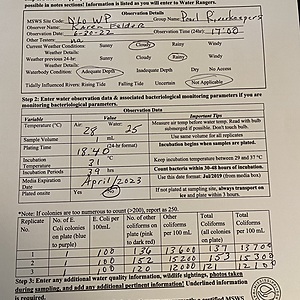 possible in notes sections! Information is listed as you will enter to Water Rangers.
Observation Details
MSWS Site Code: Group Name:
Observer Name: Karen Felder
Observation Date: 6-20-22 Observation Time (24hr): 17:00
Other Testers: na
Current Weather Conditions: Sunny Cloudy Rainy Windy
Weather previous 24-hr: Sunny Cloudy Rainy Windy
Waterbody Condition: Adequate Depth Inadequate Depth Dry No Access
Tidally Influenced Rivers: Rising Tide Falling Tide Uncertain Not Applicable
Step 2: Enter water observation data & associated bacteriological monitoring parameters if you are
monitoring bacteriological parameters.
Observation Data
Variable Value Important Tips
Temperature (°C) Air: 28 Water: 25 Measure air temp before water temp. Read with bulb
submerged if possible. Don't touch bulb.
Sample Volume Use same volume for all replicates.
Plating Time 18:40 (24-hr format) Incubation begins when samples are plated.
Incubation Temperature 31 °C Keep incubation temperature between 29 and 37 °C
Incubation Periods 39 hrs Count bacteria within 30-48 hours of incubation.
Media Expiration Date April/2023 Use this date format: Jul/2019 (from media box)
Plated onsite Yes No If not plated at sampling site, always transport on
ice and plate within 3 hours.
*Note: If colonies are too numerous to count (>200), report as 250.
Replicate No. No. of E. Coli colonies on plate (blue to purple) E. Coli per 100mL No. of other coliforms on plate (pink to dark red) Other coliforms per 100 mL Total Coliforms (all colonies on plate) Total Coliforms per 100 mL
1 1 100 136 13600 137 13700
2 1 100 152 15200 153 15300
3 1 100 120 12000 121 12100
Step 3: Enter any additional water quality information, wildlife sightings, photos taken
during sampling, and add any additional pertinent information! Underlined information
is required.
certified MSWS